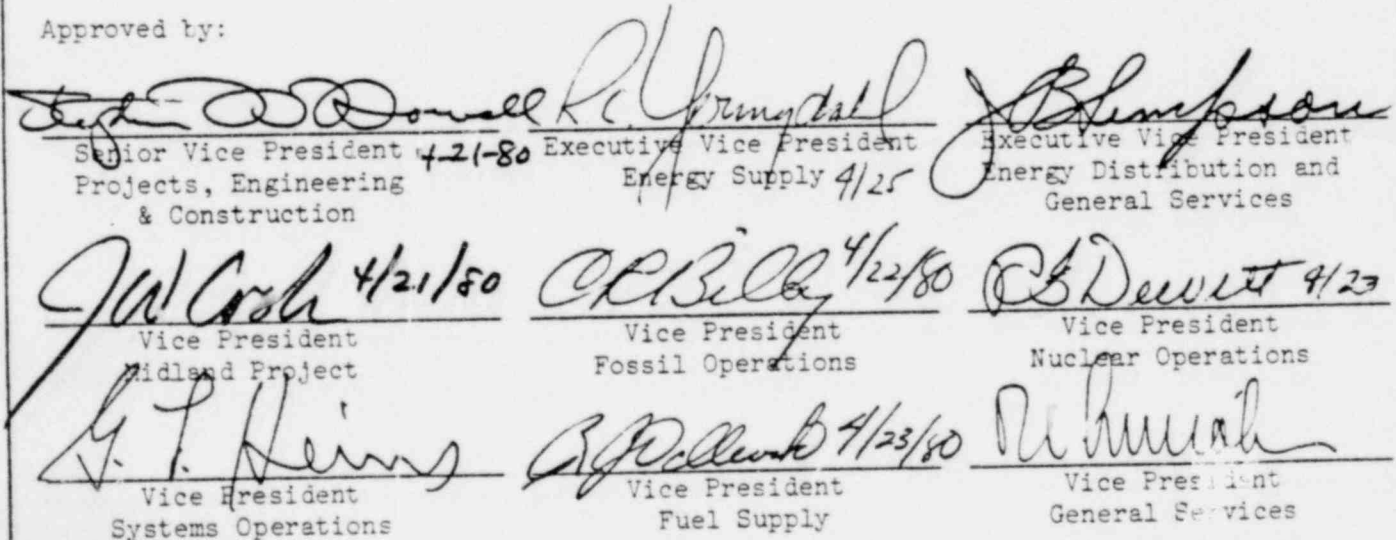 Approved by:
Stephen
Senior Vice President 4-21-80
Projects, Engineering
& Construction
R C Youngdahl
Executive Vice President
Energy Supply 4/25
Executive Vice President
Energy Distribution and
General Services
J W Cook 4/21/80
Vice President
Midland Project
C R Bilby 4/22/80
Vice President
Fossil Operations
R B Dewitt 4/23
Vice President
Nuclear Operations
G. T. Heins
Vice President
Systems Operations
4/23/80
Vice President
Fuel Supply
Vice President
General Services